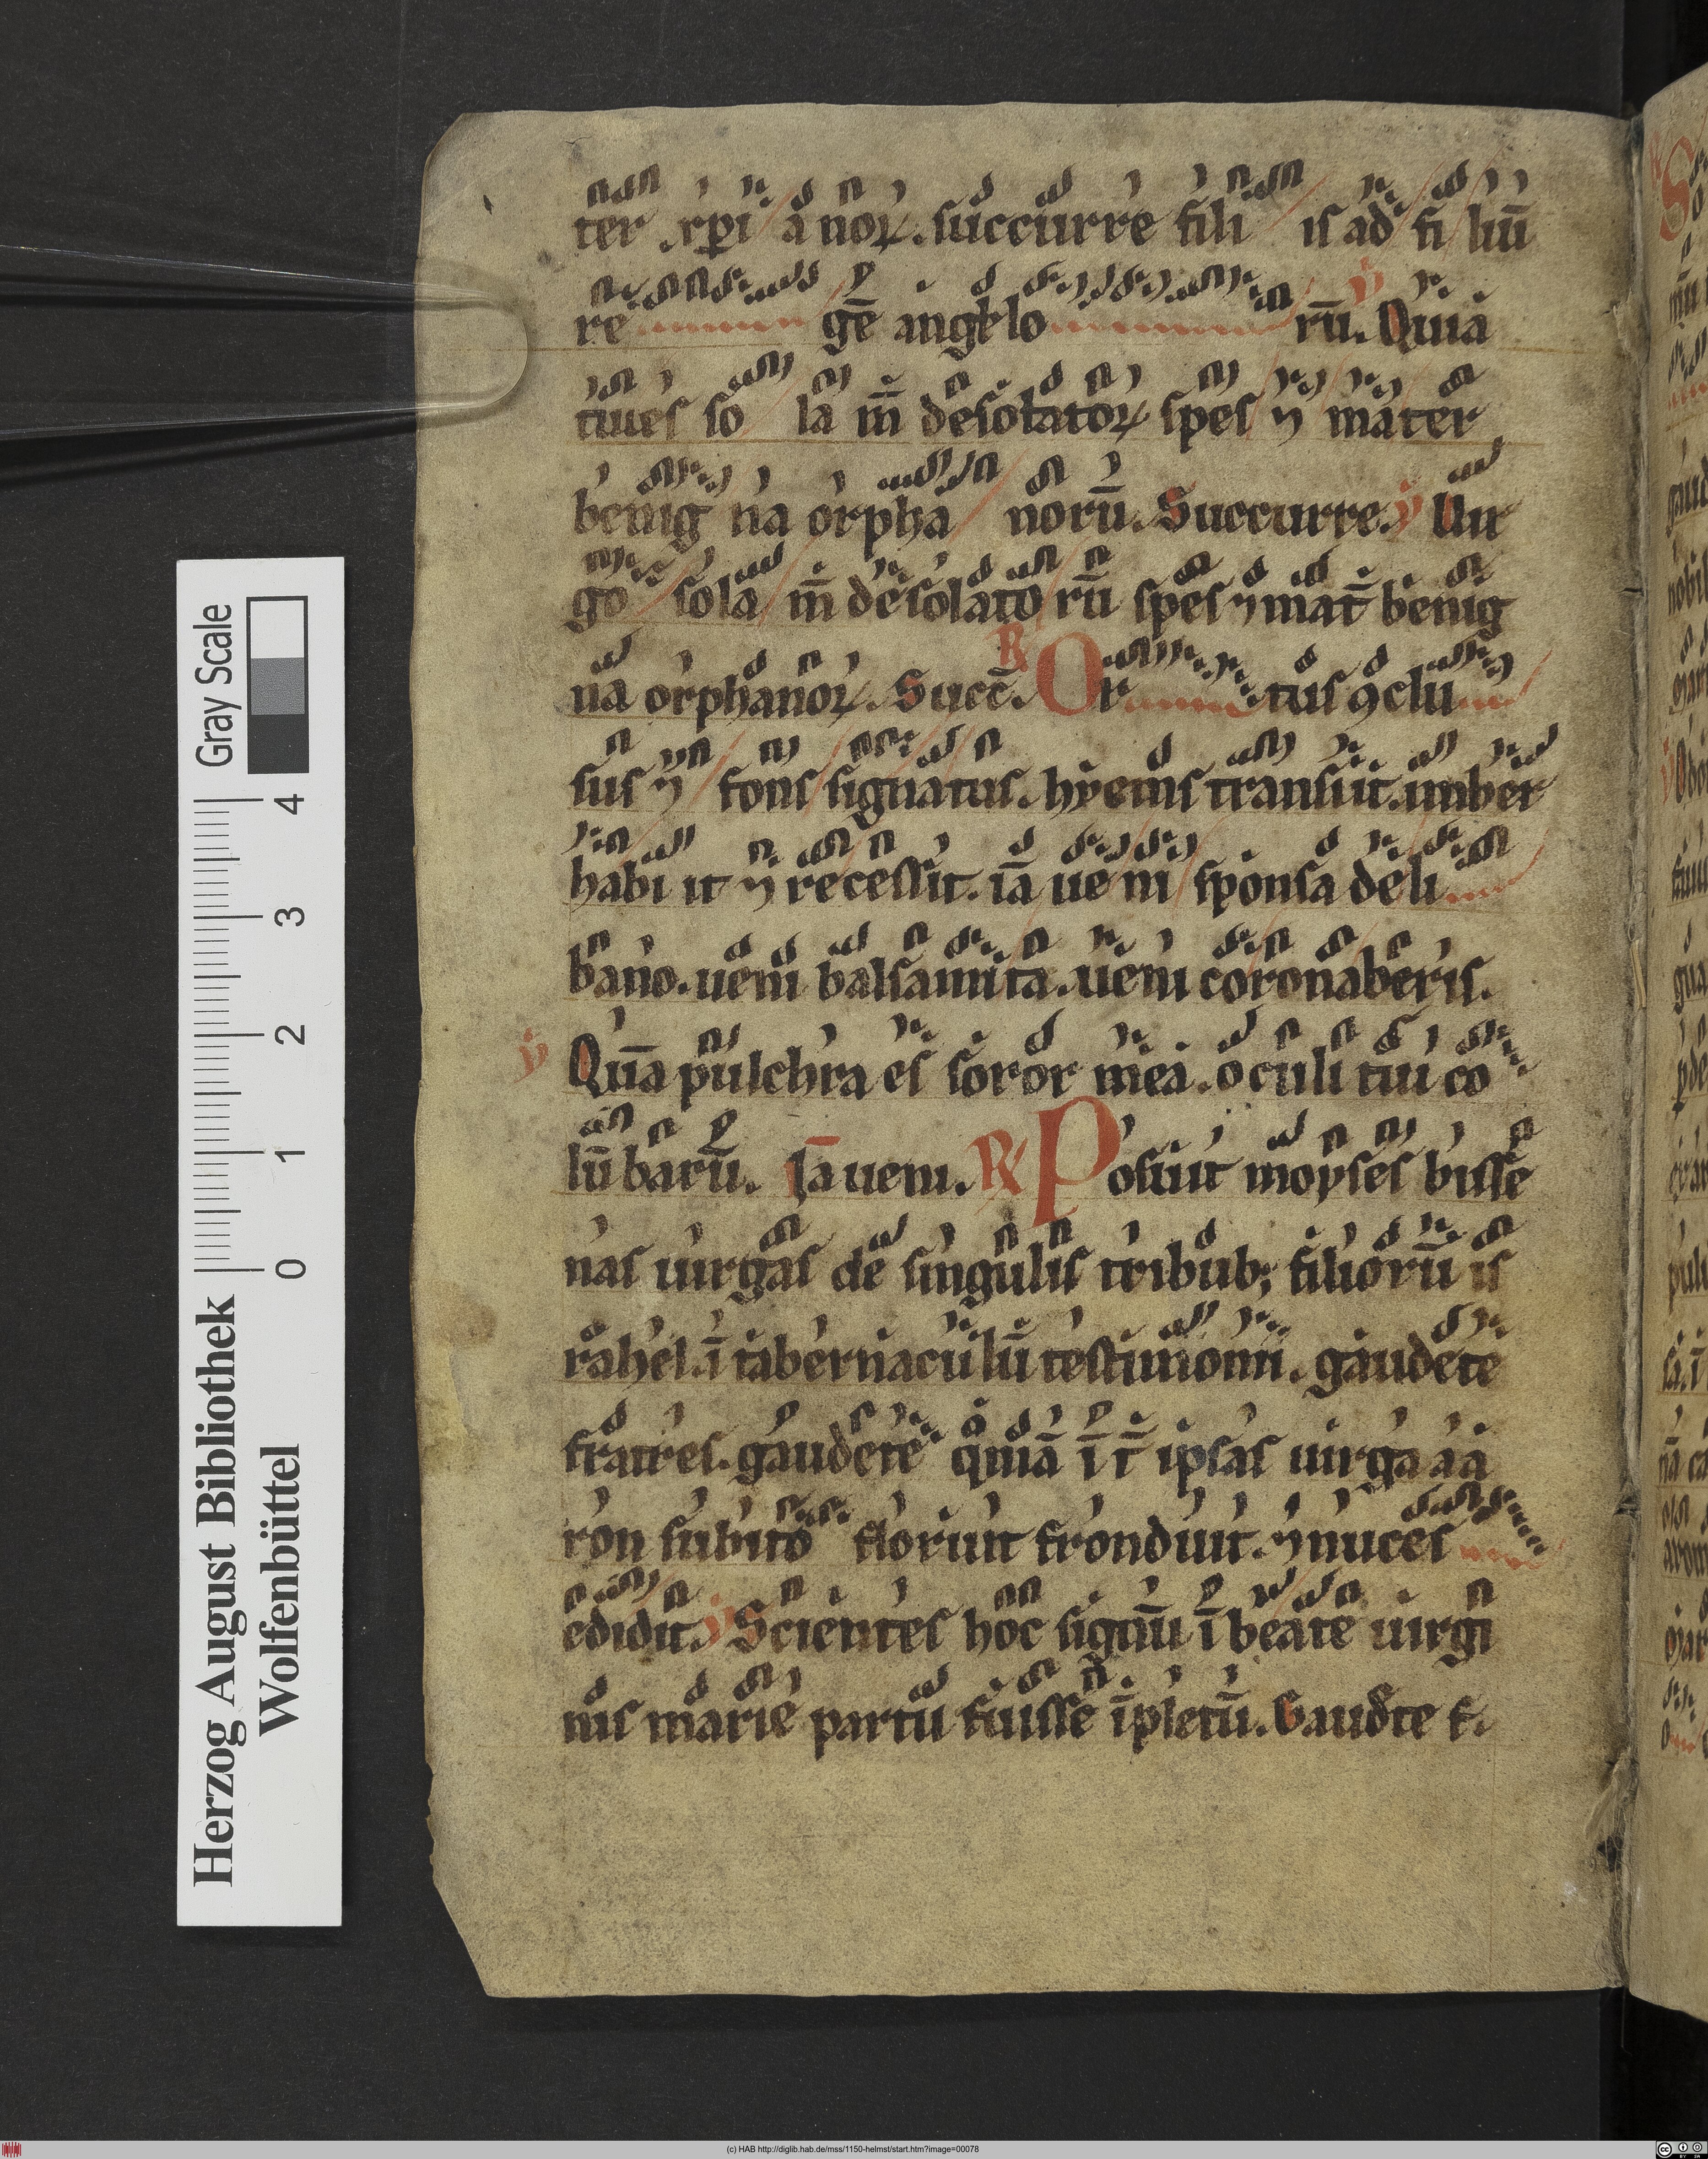 ter xp̄i a noꝝ. succurre fili is ad fi liū
re gē angelo rū. ℣ Quia
tu es so la m̄ desolatoꝝ spes ⁊ mater
benig na orpha norū. Succurre. ℣ Uir
go sola m̄ desolato rū spes ⁊ mat̄ benig
na orphanoꝝ. Succ̄. ℟ Or tus ꝯclu
sus ⁊ fons signatus. hyems transiit. imber
habi it ⁊ recessit. iā ue ni sponsa de li
bano. ueni balsamita. ueni coronaberis.
℣ Quā pulchra es soror mea. oculi tui co
lū barū. Iā ueni. ℟ Posuit moyses bisse
nas uirgas de singulis tribub; filiorū is
rahel. ī tabernaculū testimonii. gaudete
fratres. gaudete quia īt̄ ipsas uirga aa
ron subito floruit fronduit. ⁊ nuces
edidit. ℣ Scientes hoc signū ī beate uirgi
nis marie partū fuisse īpletū. Gaudete f.
Herzog August Bibliothek
Wolfenbüttel
Gray Scale
0 1 2 3 4
(c) HAB http://diglib.hab.de/mss/1150-helmst/start.htm?image=00078